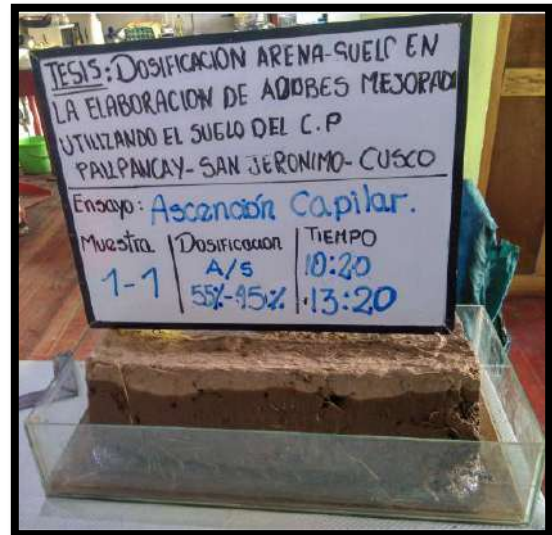 TESIS: DOSIFICACION ARENA-SUELO EN
LA ELABORACION DE ADOBES MEJORADO
UTILIZANDO EL SUELO DEL C.P
PAUPANCAY- SAN JERONIMO- CUSCO
Ensayo: Ascención Capilar.
Muestra Dosificacion TIEMPO
1-1 A/S 10:20
55%-45% 13:20